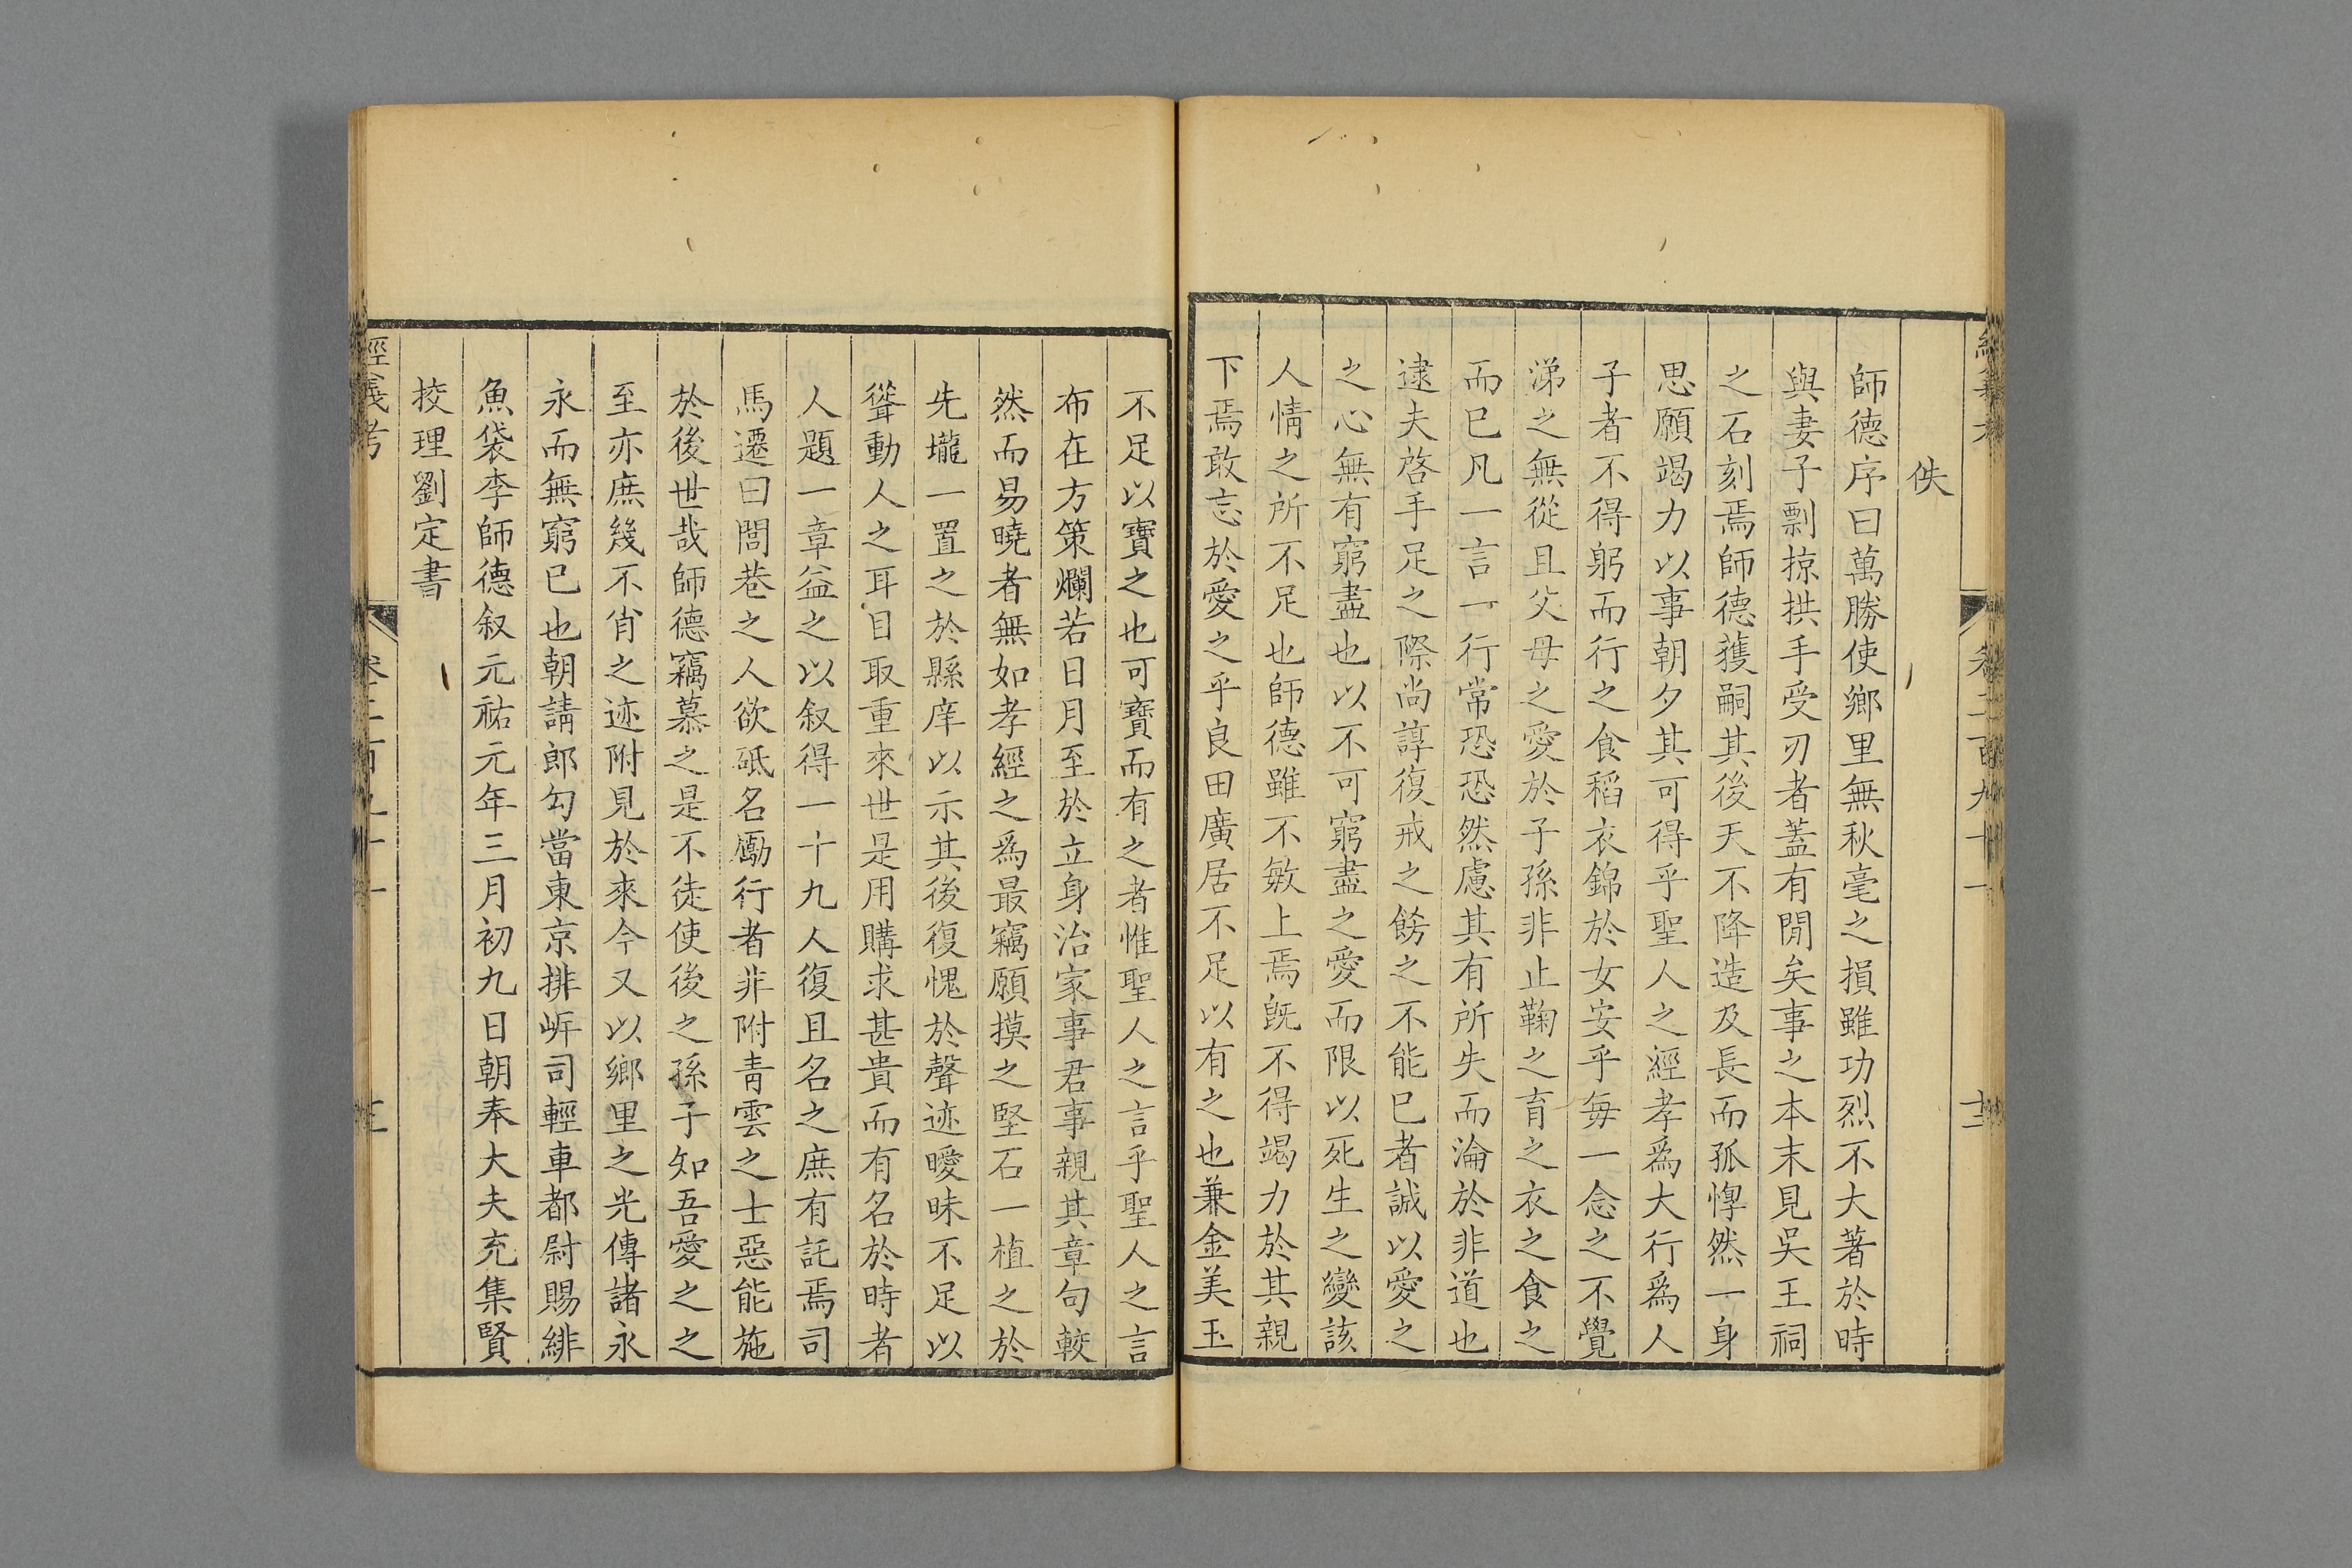 佚
師德序曰萬勝使鄉里無秋毫之損雖功烈不大著於時
與妻子剽掠拱手受刃者蓋有閒矣事之本末見吳王祠
之石刻焉師德獲嗣其後天不降造及長而孤惸然一身
思願竭力以事朝夕其可得乎聖人之經孝爲大行爲人
子者不得躬而行之食稻衣錦於女安乎每一念之不覺
涕之無從且父母之愛於子孫非止鞠之育之衣之食之
而已凡一言一行常恐恐然慮其有所失而淪於非道也
逮夫啓手足之際尚諄復戒之餘之不能已者誠以愛之
之心無有窮盡也以不可窮盡之愛而限以死生之變該
人情之所不足也師德雖不敏上焉旣不得竭力於其親
下焉敢忘於愛之乎良田廣居不足以有之也兼金美玉
不足以寶之也可寶而有之者惟聖人之言乎聖人之言
布在方策爛若日月至於立身治家事君事親其章句較
然而易曉者無如孝經之爲最竊願摸之堅石一植之於
先壠一置之於縣庠以示其後復愧於聲迹曖昧不足以
聳動人之耳目取重來世是用購求甚貴而有名於時者
人題一章益之以叙得一十九人復且名之庶有託焉司
馬遷曰閭巷之人欲砥名勵行者非附青雲之士惡能施
於後世哉師德竊慕之是不徒使後之孫子知吾愛之之
至亦庶幾不肖之迹附見於來今又以鄉里之光傳諸永
永而無窮已也朝請郎勾當東京排岸司輕車都尉賜緋
魚袋李師德叙元祐元年三月初九日朝奉大夫充集賢
挍理劉定書
經義考
卷二百九十一